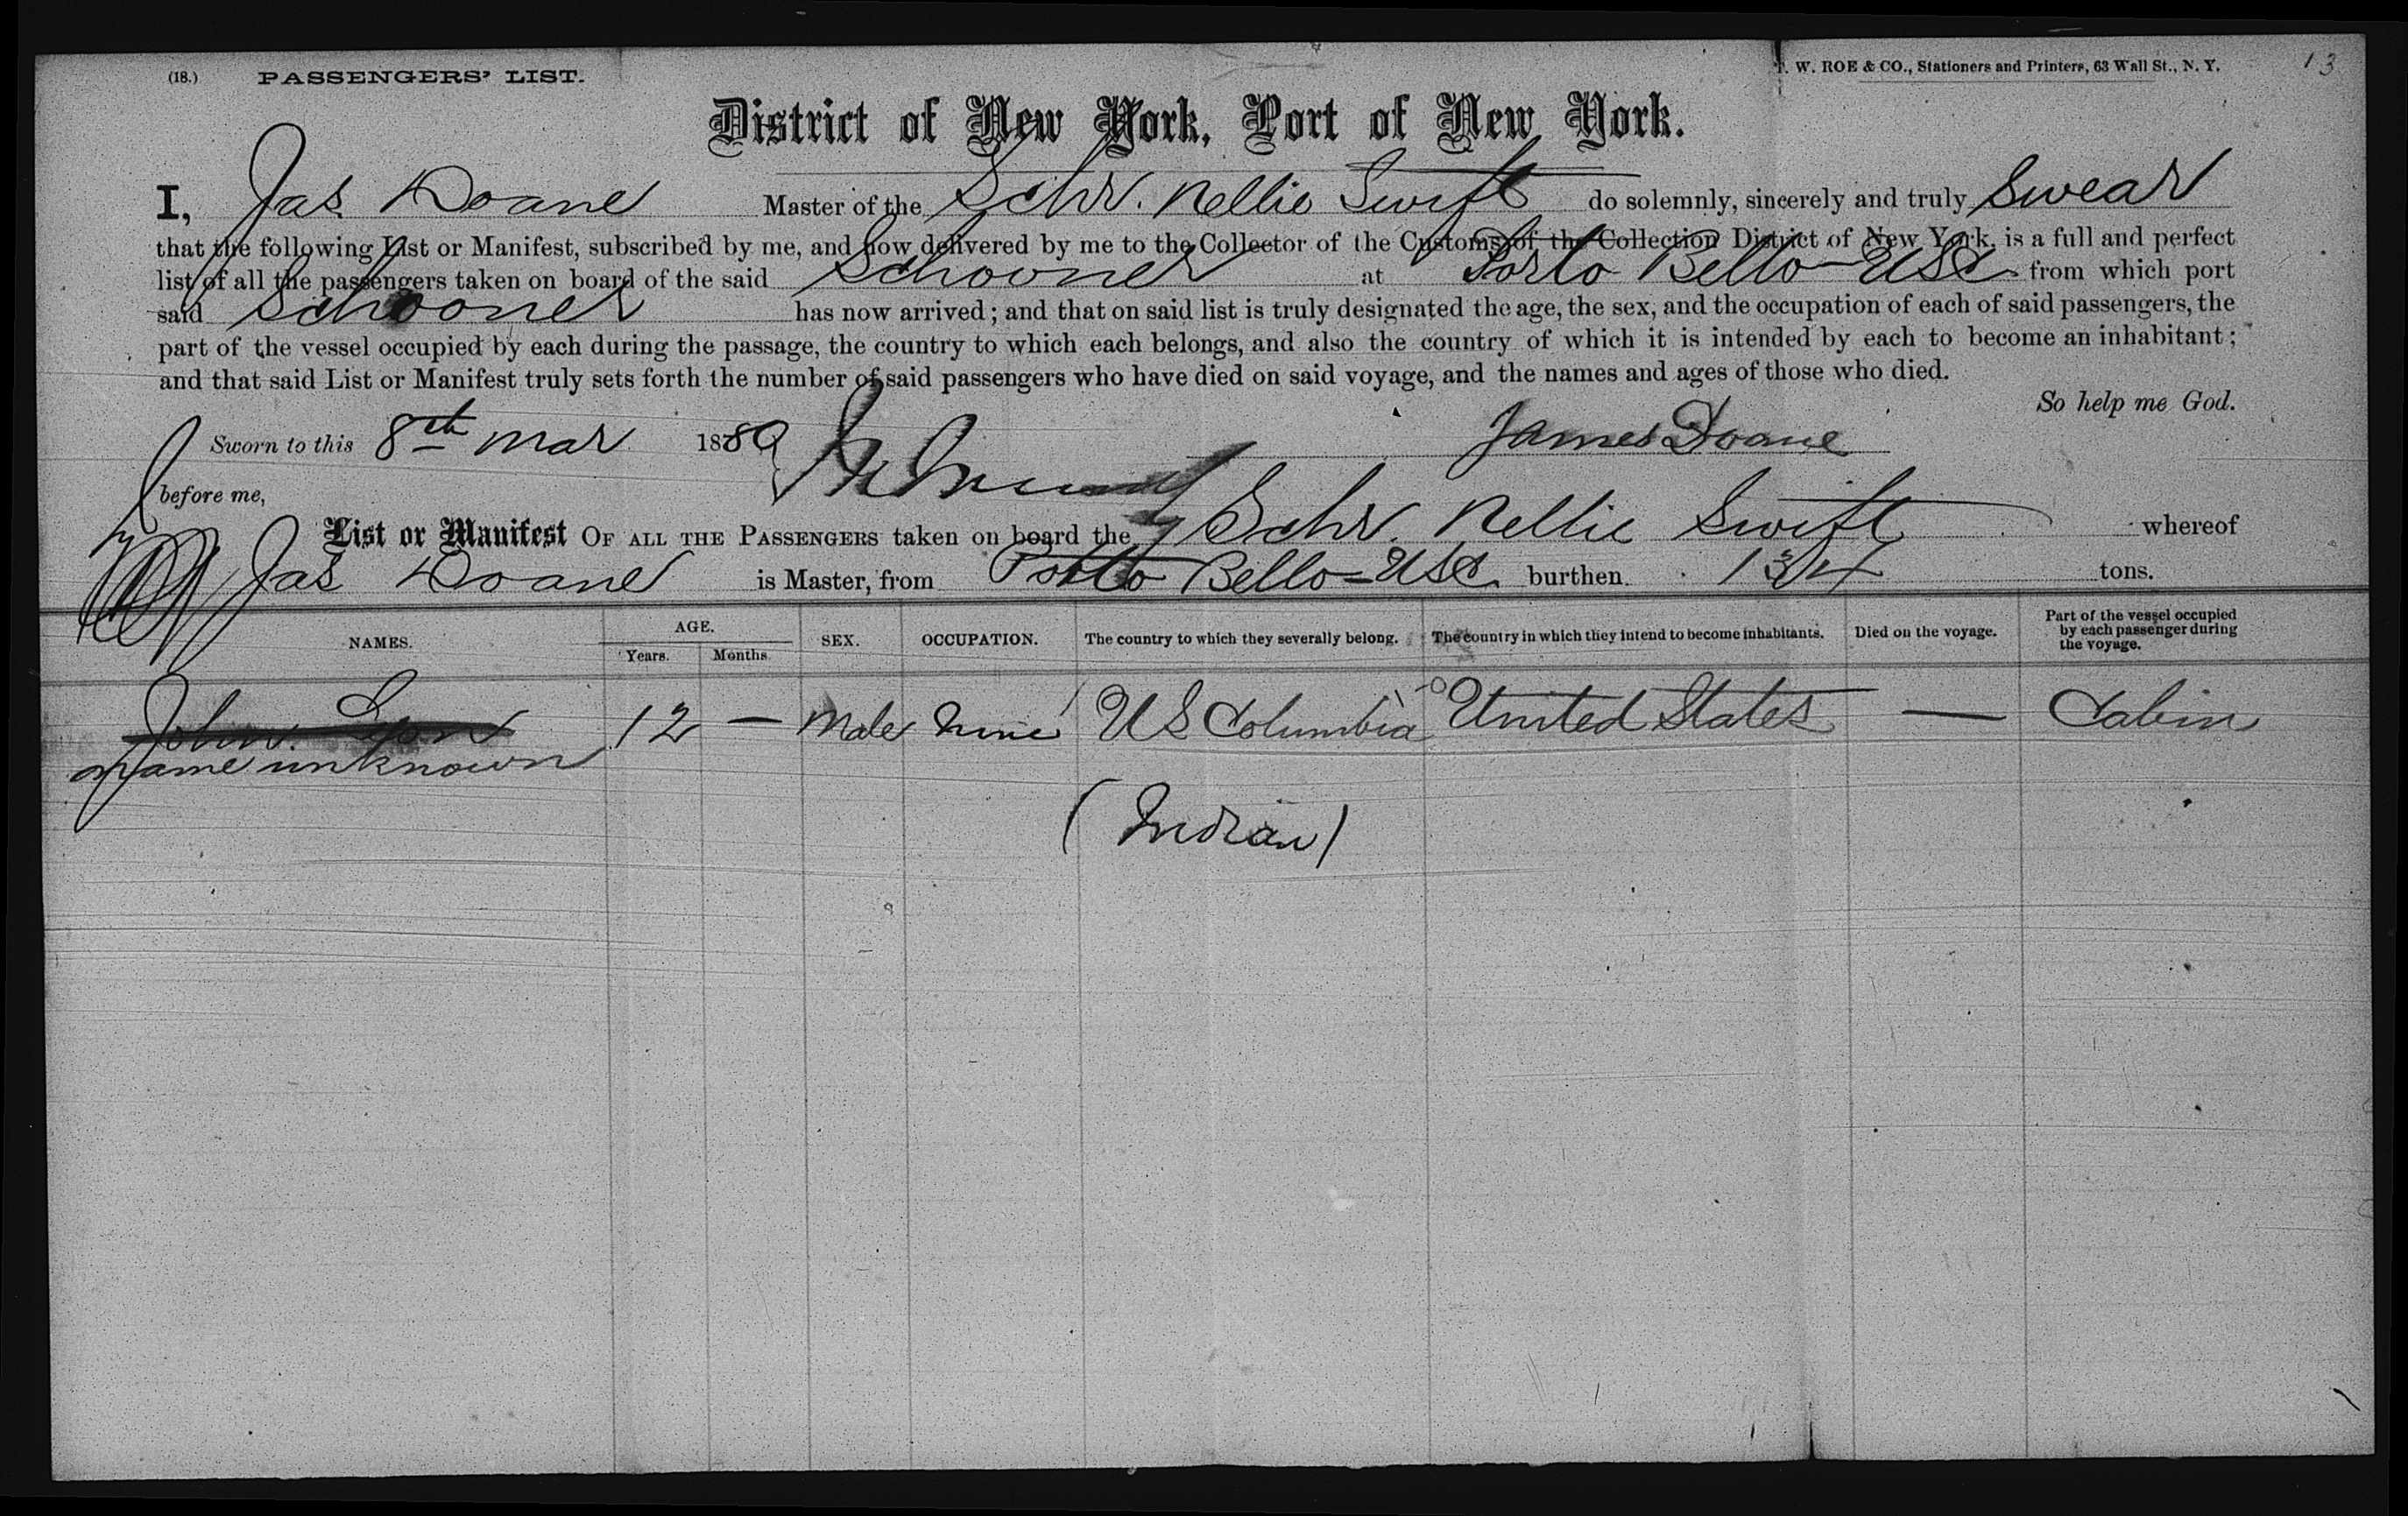 (18.) PASSENGERS' LIST.
W. ROE & CO., Stationers and Printers, 63 Wall St., N. Y.
13
District of New York, Port of New York.
I, Jas Doane Master of the Schr. Nellie Swift do solemnly, sincerely and truly swear
that the following List or Manifest, subscribed by me, and now delivered by me to the Collector of the Customs of the Collection District of New York, is a full and perfect
list of all the passengers taken on board of the said Schooner at Porto Bello - USC from which port
said Schooner has now arrived; and that on said list is truly designated the age, the sex, and the occupation of each of said passengers, the
part of the vessel occupied by each during the passage, the country to which each belongs, and also the country of which it is intended by each to become an inhabitant;
and that said List or Manifest truly sets forth the number of said passengers who have died on said voyage, and the names and ages of those who died.
So help me God.
Sworn to this 8th Mar 1889 James Doane
before me,
List or Manifest OF ALL THE PASSENGERS taken on board the Schr. Nellie Swift whereof
Jas Doane is Master, from Porto Bello - USC burthen 134 tons.
NAMES. AGE. Years. Months. SEX. OCCUPATION. The country to which they severally belong. The country in which they intend to become inhabitants. Died on the voyage. Part of the vessel occupied by each passenger during the voyage.
John 12 — Male None US Columbia United States — Cabin
name unknown
(Indian)